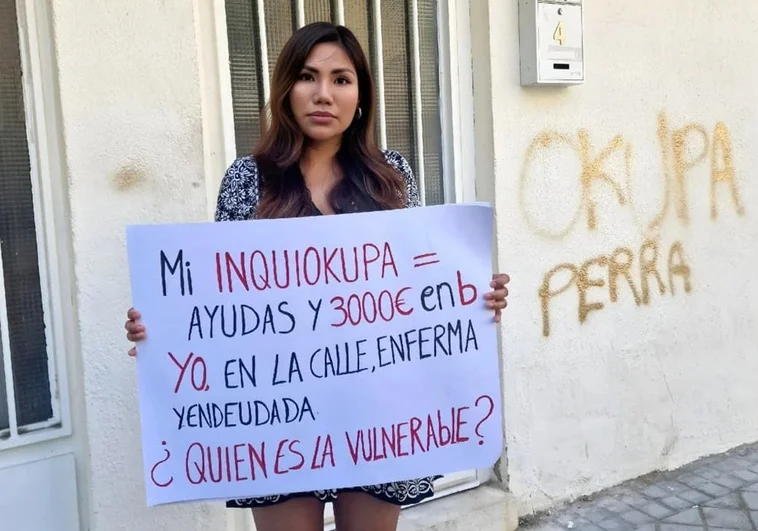 Mi INQUIOKUPA =
AYUDAS Y 3000€ en b
YO, EN LA CALLE, ENFERMA
Y ENDEUDADA.
¿QUIEN ES LA VULNERABLE?
4
OKUPA
PERRA